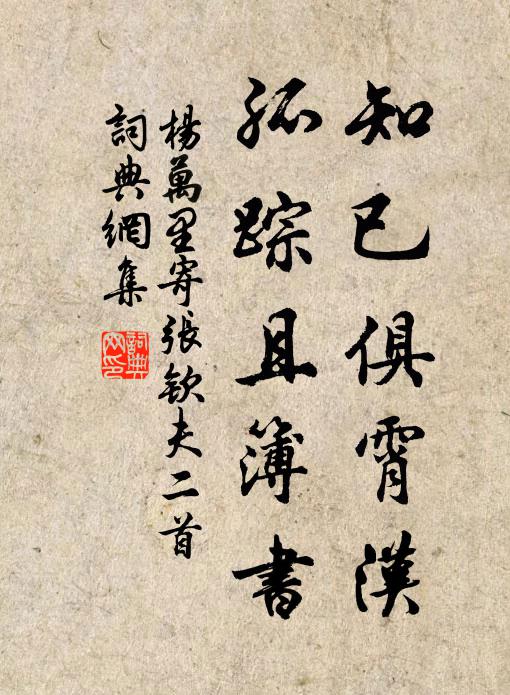 知己俱霄漢
孤踪且簿書
楊萬里寄張欽夫二首
詞典網集
詞典
網印